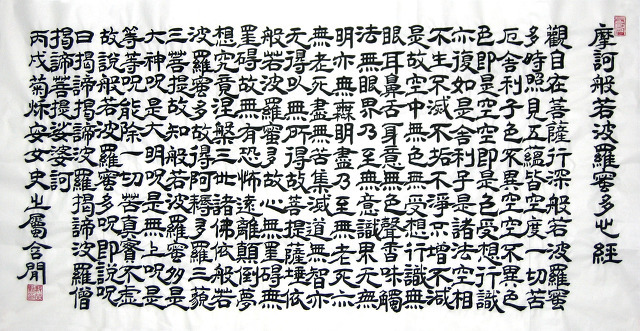 摩訶般若波羅蜜多心經
觀自在菩薩行深般若波羅蜜
多時照見五蘊皆空度一切苦
厄舍利子色不異空空不異色
色即是空空即是色受想行識
亦復如是舍利子是諸法空相
不生不滅不垢不淨不增不減
是故空中無色無受想行識無
眼耳鼻舌身意無色聲香味觸
法無眼界乃至無意識界無無
明亦無無明盡乃至無老死亦
無老死盡無苦集滅道無智亦
无得以無所得故菩提薩埵依
般若波羅蜜多故心無罣礙無
罣礙故無有恐怖遠離顛倒夢
想究竟涅槃三世諸佛依般若
波羅蜜多故得阿耨多羅三藐
三菩提故知般若波羅蜜多是
大神呪是大明呪是無上呪是
等等呪能除一切苦真實不虛
故說般若波羅蜜多呪即說呪
曰揭諦揭諦波羅揭諦波羅僧
揭諦菩提娑婆訶
丙戌菊秌安女史之屬含閒